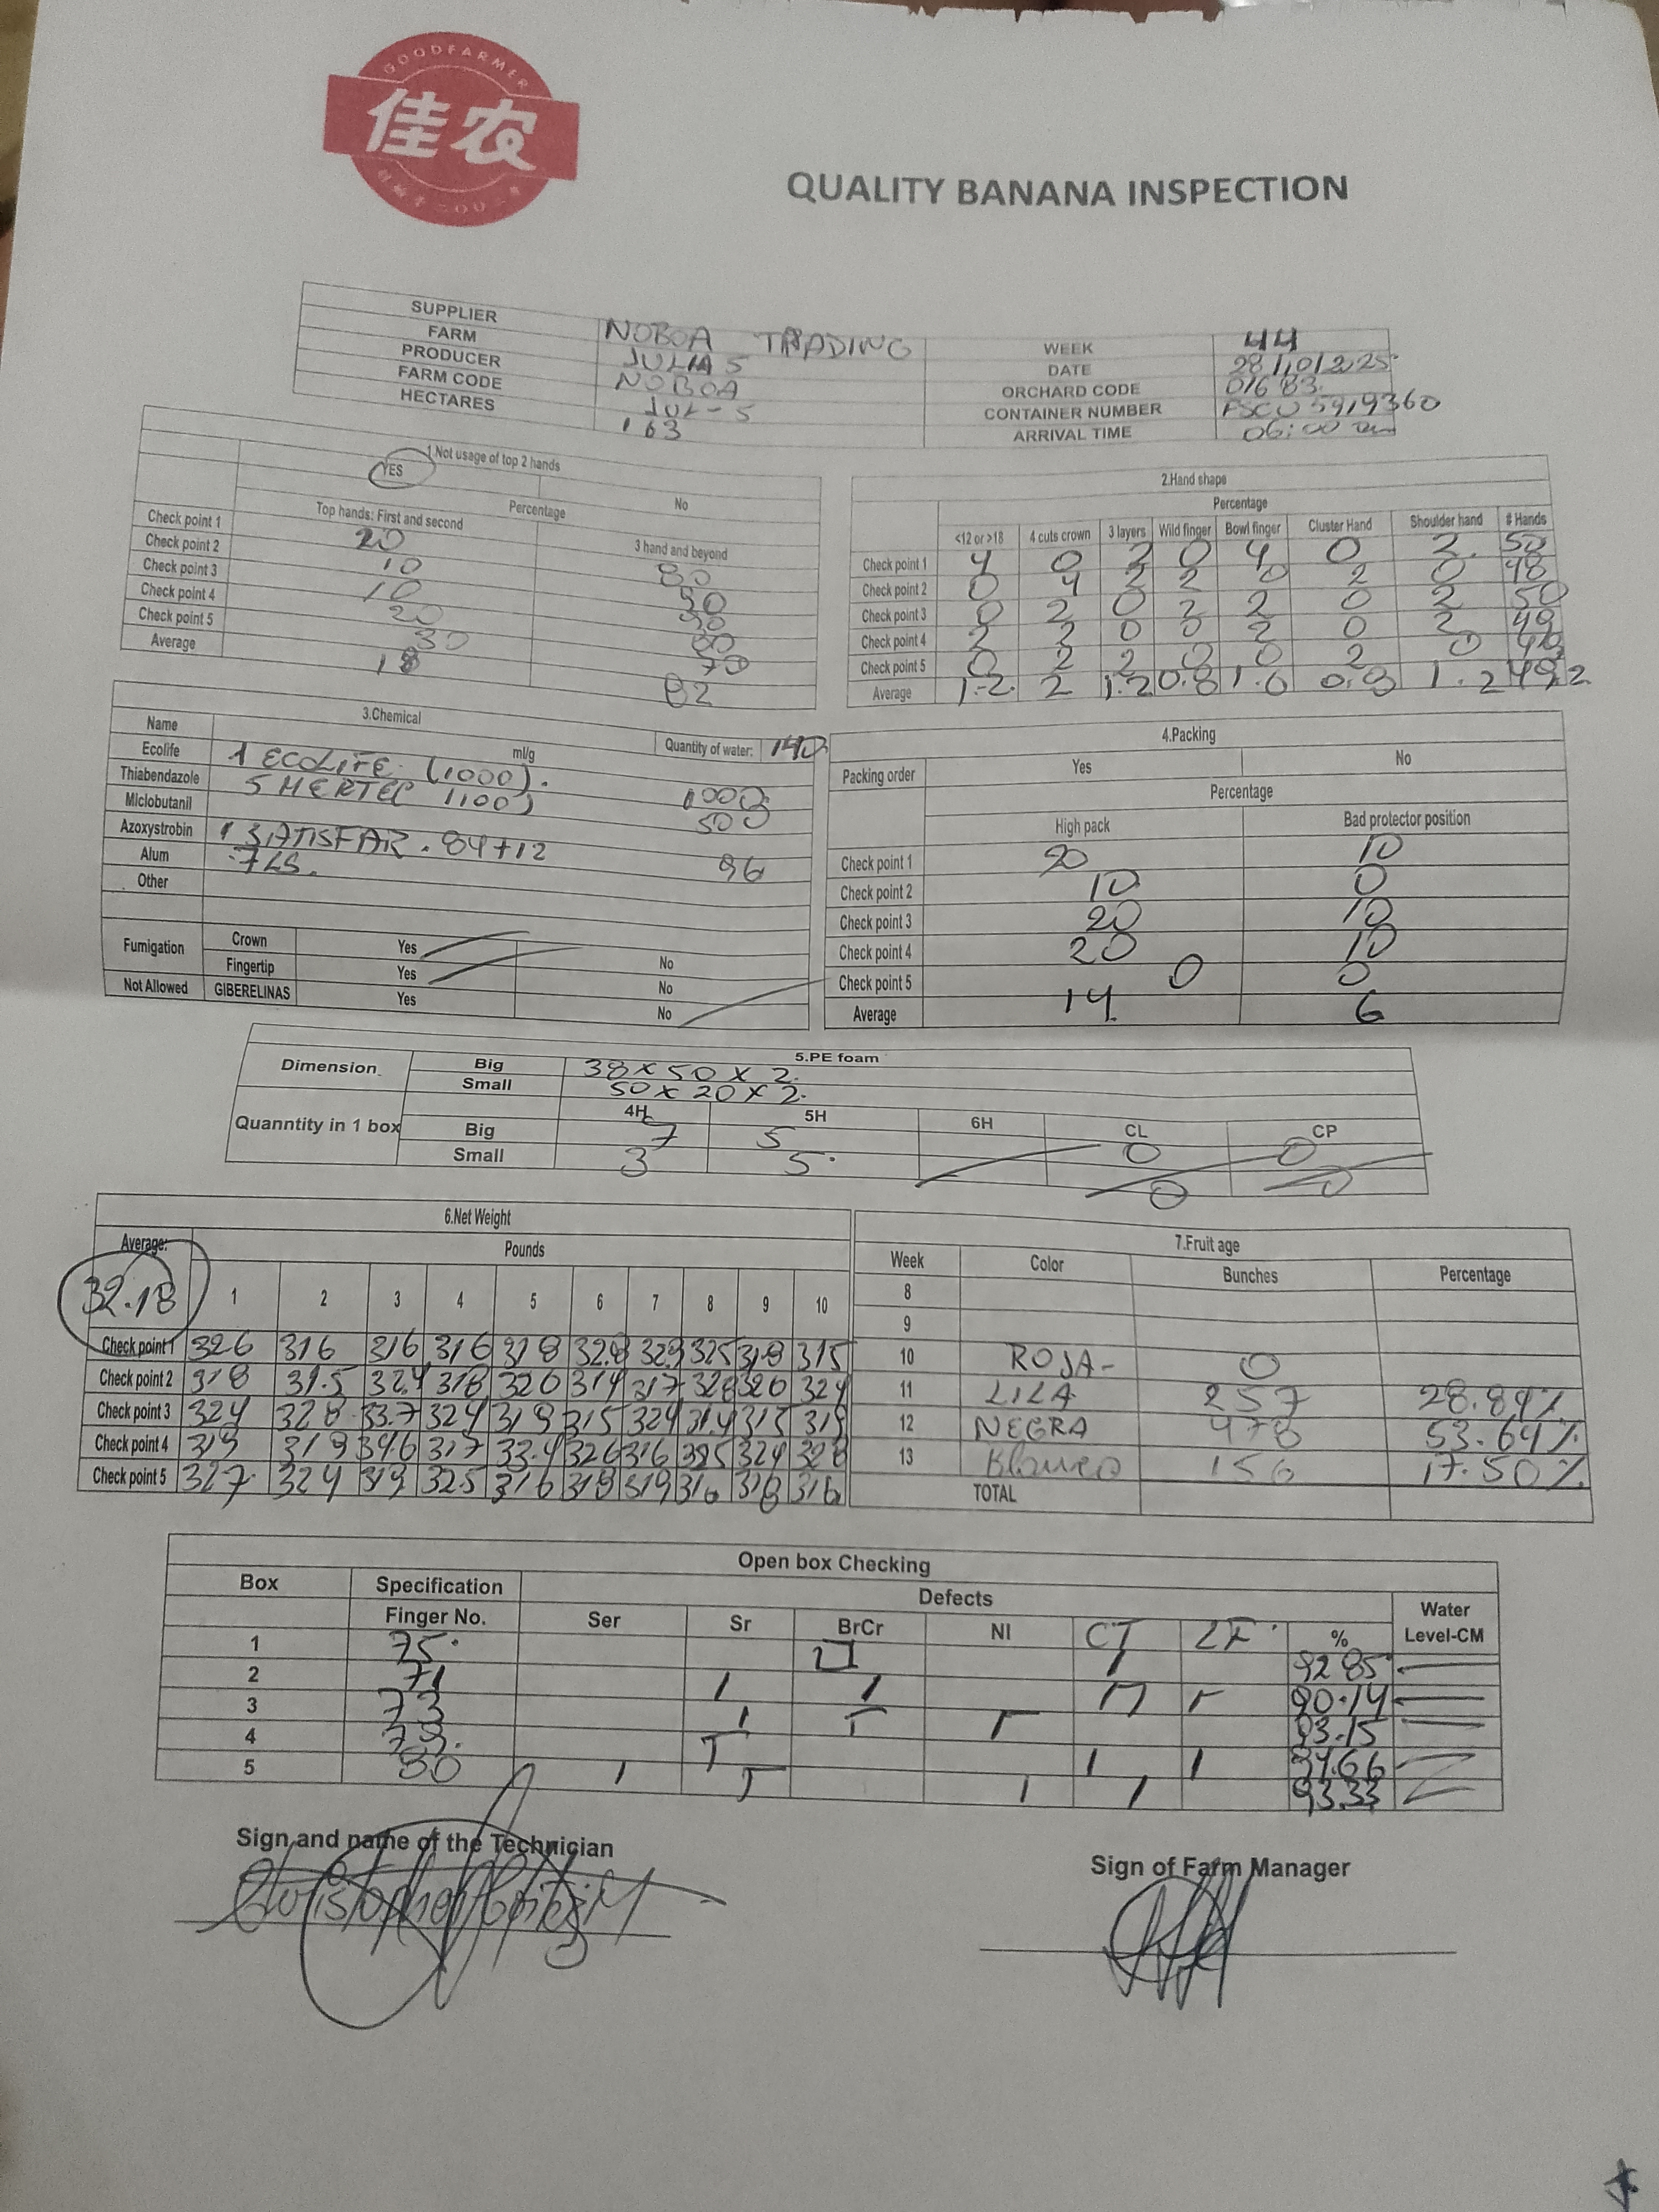 GOODFARMER
佳农
QUALITY BANANA INSPECTION
SUPPLIER NOBOA TRADING
FARM JULIA 5
PRODUCER NOBOA
FARM CODE JUL-5
HECTARES 163
WEEK 44
DATE 28/10/2025
ORCHARD CODE 01683
CONTAINER NUMBER
ARRIVAL TIME 06:00 am
1.Not usage of top 2 hands
YES No
Percentage
Top hands: First and second 3 hand and beyond
Check point 1 20 80
Check point 2 10 90
Check point 3 10 90
Check point 4 20 80
Check point 5 30 70
Average 18 82
2.Hand shape
Percentage
<12 or >18 4 cuts crown 3 layers Wild finger Bowl finger Cluster Hand Shoulder hand # Hands
Check point 1 4 0 2 0 4 0 2 50
Check point 2 0 4 2 2 0 2 0 48
Check point 3 0 2 0 2 2 0 2 50
Check point 4 2 2 0 0 2 0 2 49
Check point 5 0 2 2 0 0 2 0
Average 1.2 2 1.2 0.8 1.6 0.8 1.2 49.2
3.Chemical
Name ml/g Quantity of water: 140
Ecolife 1 ECOLIFE (1000). 1000
Thiabendazole 5 MERTEC (100) 500
Miclobutanil
Azoxystrobin 1 SATISFAR. 84712 96
Alum 7LS.
Other
Fumigation Crown Yes No
Fingertip Yes No
Not Allowed GIBERELINAS Yes No
4.Packing
Packing order Yes No
Percentage
High pack Bad protector position
Check point 1 20 10
Check point 2 10 0
Check point 3 20 10
Check point 4 20 10
Check point 5 0 0
Average 14 6
5.PE foam
Dimension Big 38 x 50 x 2.
Small 50 x 20 x 2.
Quanntity in 1 box 4H 5H 6H CL CP
Big 7 5 0 0
Small 3 5 0 0
6.Net Weight
Average: Pounds
32.18 1 2 3 4 5 6 7 8 9 10
Check point 1 326 316 316 316 318 32.8 329 325 318 315
Check point 2 318 31.5 32.4 318 320 314 317 328 320 324
Check point 3 324 328 33.7 324 319 315 324 31.4 315 319
Check point 4 319 319 317 33.4 326 316 324 328
Check point 5 327 324 319 32.5 316 318 319 316 318 316
7.Fruit age
Week Color Bunches Percentage
8
9
10 ROJA- 0
11 LILA 257 28.84%
12 NEGRA 478 53.64%
13 Blanco 156 17.50%
TOTAL
Open box Checking
Box Specification Defects Water
Finger No. Ser Sr BrCr NI CT LF % Level-CM
1 75 92.85
2 71 90.14
3 73 93.15
4 94.66
5 80 93.33
Sign and name of the Technician
Sign of Farm Manager